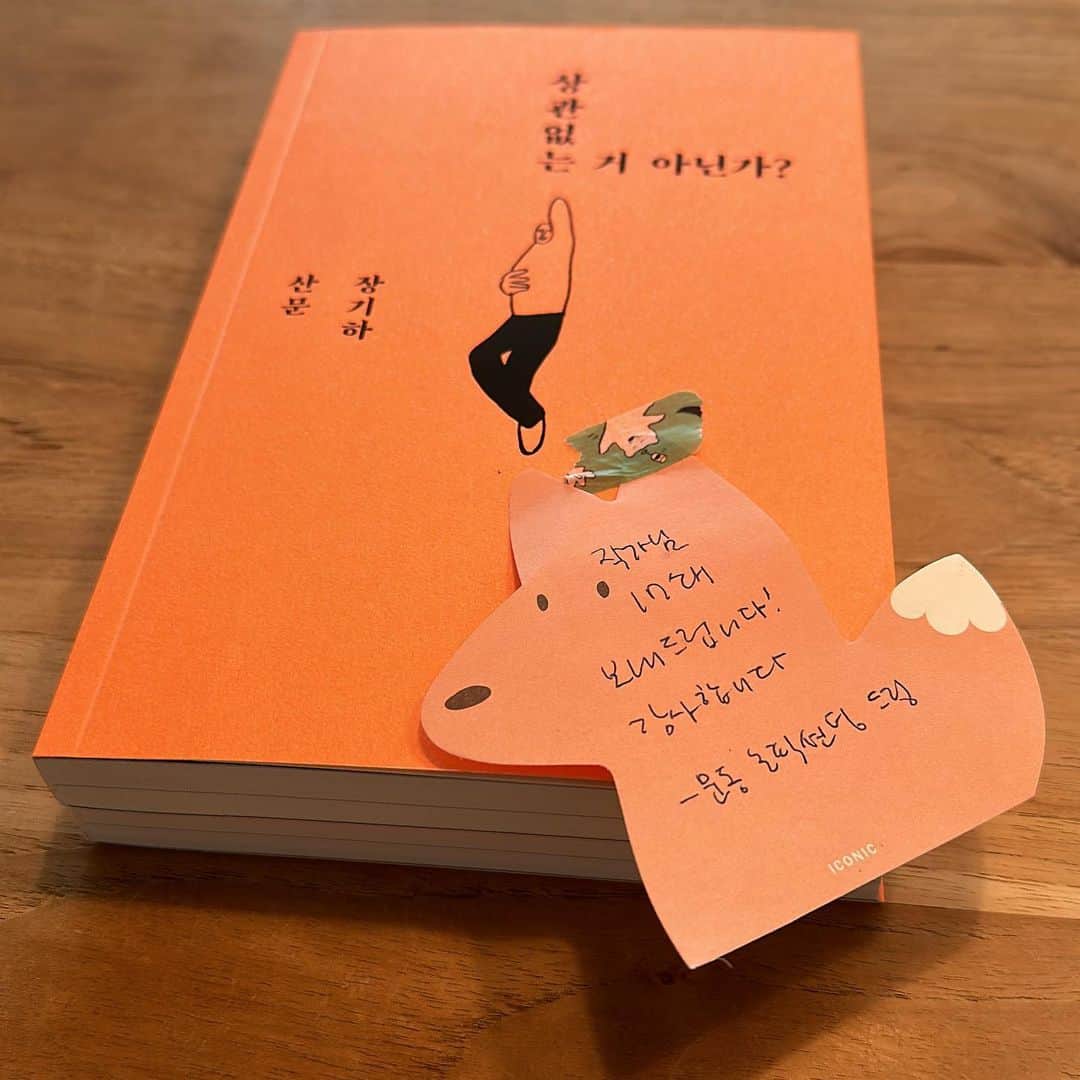 상관없는 거 아닌가?
장기하
산문
작가님
17쇄
보내드립니다!
감사합니다
-문동 드림
ICONIC